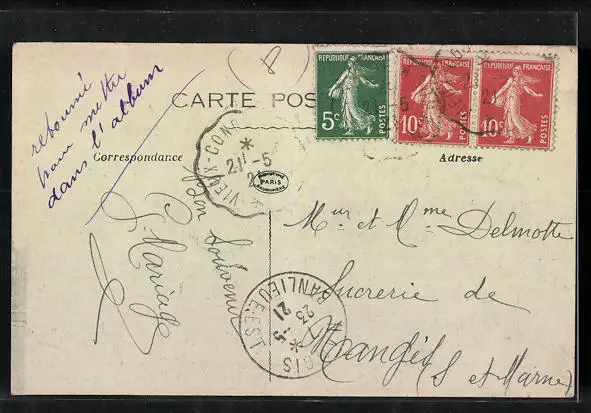 retourné
pour mettre
dans l'album
CARTE POS
REPUBLIQUE FRANÇAISE
5c
POSTES
REPUBLIQUE FRANÇAISE
10c
POSTES
REPUBLIQUE FRANÇAISE
10c
POSTES
Correspondance
Adresse
VIEUX-COND
21-5
PARIS
Bon Souvenir
Mariage
Mur et Mme Delmotte
Sucrerie de
Nangis
(S et Marne)
BANLIEUE EST
23 - 5
21